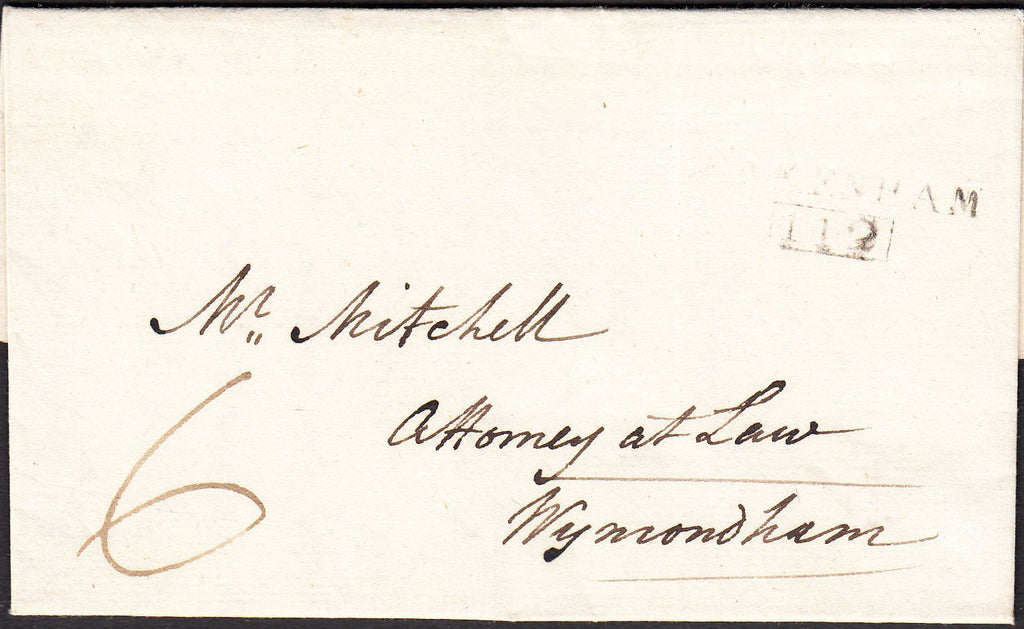 AKENHAM
112
Mr. Mitchell
6
Attorney at Law
Wymondham